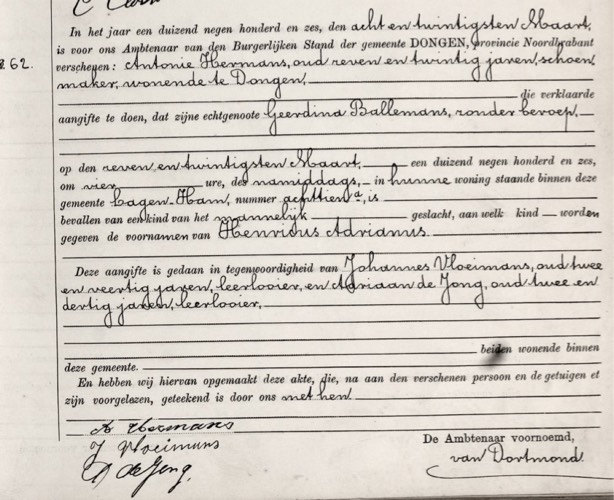 In het jaar een duizend negen honderd en zes, den acht en twintigsten Maart,
is voor ons Ambtenaar van den Burgerlijken Stand der gemeente DONGEN, provincie Noordbrabant
62. verschenen: Antonie Hermans, oud zeven en twintig jaren, schoen
maker, wonende te Dongen,
die verklaarde
aangifte te doen, dat zijne echtgenoote Geerdina Ballemans, zonder beroep,
op den zeven en twintigsten Maart, een duizend negen honderd en zes,
om vier ure, des namiddags, in hunne woning staande binnen deze
gemeente Lagen Ham, nummer achttien a, is
bevallen van een kind van het mannelijk geslacht, aan welk kind worden
gegeven de voornamen van Henricus Adrianus.
Deze aangifte is gedaan in tegenwoordigheid van Johannes Vloeimans, oud twee
en veertig jaren, leerlooier, en Adriaan de Jong, oud twee en
dertig jaren, leerlooier,
beiden wonende binnen
deze gemeente.
En hebben wij hiervan opgemaakt deze akte, die, na aan den verschenen persoon en de getuigen te
zijn voorgelezen, geteekend is door ons met hen.
A Hermans
J Vloeimans
A de Jong.
De Ambtenaar voornoemd,
van Dortmond